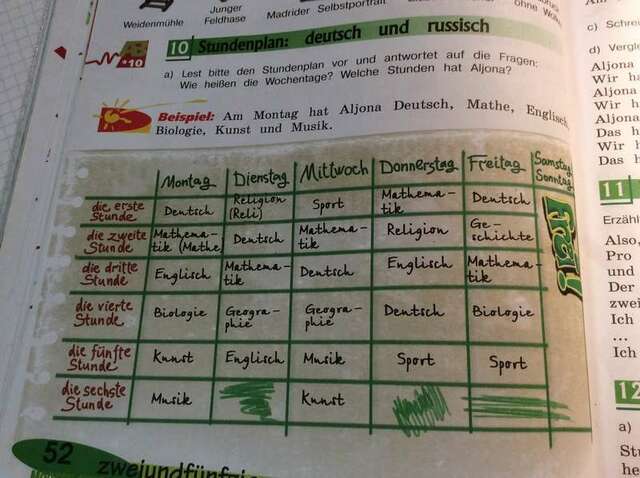 Weidenmühle
Junger
Feldhase
Madrider Selbstportrait
AB
*10
10 Stundenplan: deutsch und russisch
a) Lest bitte den Stundenplan vor und antwortet auf die Fragen:
Wie heißen die Wochentage? Welche Stunden hat Aljona?
Beispiel: Am Montag hat Aljona Deutsch, Mathe, Englisch,
Biologie, Kunst und Musik.
Montag Dienstag Mittwoch Donnerstag Freitag Samstag
Sonntag
die erste Stunde Deutsch Religion (Reli) Sport Mathema-tik Deutsch
die zweite Stunde Mathema-tik (Mathe) Deutsch Mathema-tik Religion Ge-schichte
die dritte Stunde Englisch Mathema-tik Deutsch Englisch Mathema-tik
die vierte Stunde Biologie Geogra-phie Geogra-phie Deutsch Biologie
die fünfte Stunde Kunst Englisch Musik Sport Sport
die sechste Stunde Musik Kunst
Frei!
52 zweiundfünfzig
c) Schre
d) Vergle
Aljona
Wir ha
Aljona
Wir h
Aljona
Das h
Wir h
Das h
11
Erzähl
Also,
Pro
und
Der
zwei
Ich
...
Ich
12
a)
Stu
he